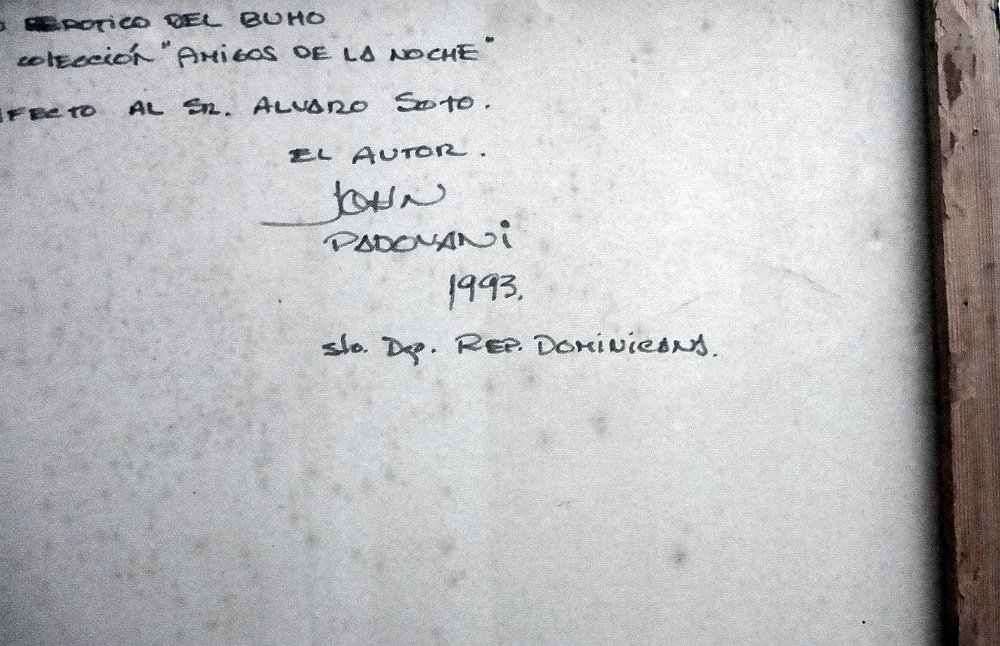 EROTICO DEL BUHO
COlEcción "AMIGOS DE LA NOCHE"
AFECTO AL SR. ALVARO SOTO.
EL AUTOR.
JOHN
PADOVANI
1993.
sto. Dgo. REP. DOMINICANA.